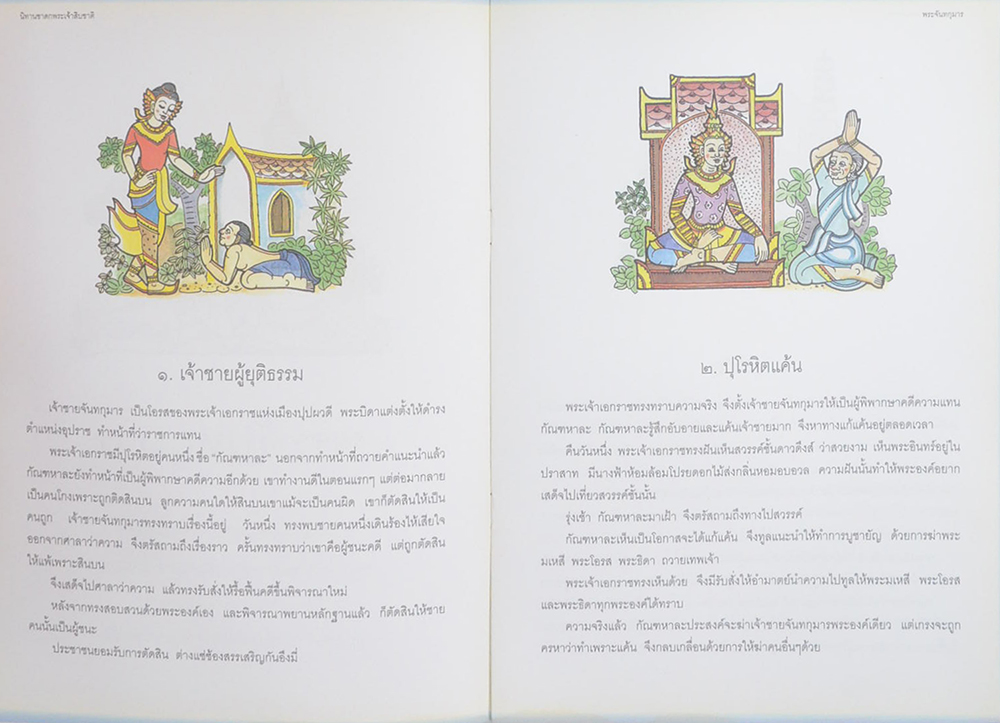 นิทานชาดกพระเจ้าสิบชาติ
๑. เจ้าชายผู้ยุติธรรม
เจ้าชายจันทกุมาร เป็นโอรสของพระเจ้าเอกราชแห่งเมืองปุปผวดี พระบิดาแต่งตั้งให้ดำรง
ตำแหน่งอุปราช ทำหน้าที่ว่าราชการแทน
พระเจ้าเอกราชมีปุโรหิตอยู่คนหนึ่ง ชื่อ "กัณฑหาละ" นอกจากทำหน้าที่ถวายคำแนะนำแล้ว
กัณฑหาละยังทำหน้าที่เป็นผู้พิพากษาคดีความอีกด้วย เขาทำงานดีในตอนแรกๆ แต่ต่อมากลาย
เป็นคนโกงเพราะถูกติดสินบน ลูกความคนใดให้สินบนเขาแม้จะเป็นคนผิด เขาก็ตัดสินให้เป็น
คนถูก เจ้าชายจันทกุมารทรงทราบเรื่องนี้อยู่ วันหนึ่ง ทรงพบชายคนหนึ่งเดินร้องไห้เสียใจ
ออกจากศาลาว่าความ จึงตรัสถามถึงเรื่องราว ครั้นทรงทราบว่าเขาคือผู้ชนะคดี แต่ถูกตัดสิน
ให้แพ้เพราะสินบน
จึงเสด็จไปศาลาว่าความ แล้วทรงรับสั่งให้รื้อฟื้นคดีขึ้นพิจารณาใหม่
หลังจากทรงสอบสวนด้วยพระองค์เอง และพิจารณาพยานหลักฐานแล้ว ก็ตัดสินให้ชาย
คนนั้นเป็นผู้ชนะ
ประชาชนยอมรับการตัดสิน ต่างแซ่ซ้องสรรเสริญกันอึงมี่
พระจันทกุมาร
๒. ปุโรหิตแค้น
พระเจ้าเอกราชทรงทราบความจริง จึงตั้งเจ้าชายจันทกุมารให้เป็นผู้พิพากษาคดีความแทน
กัณฑหาละ กัณฑหาละรู้สึกอับอายและแค้นเจ้าชายมาก จึงหาทางแก้แค้นอยู่ตลอดเวลา
คืนวันหนึ่ง พระเจ้าเอกราชทรงฝันเห็นสวรรค์ชั้นดาวดึงส์ ว่าสวยงาม เห็นพระอินทร์อยู่ใน
ปราสาท มีนางฟ้าห้อมล้อมโปรยดอกไม้ส่งกลิ่นหอมอบอวล ความฝันนั้นทำให้พระองค์อยาก
เสด็จไปเที่ยวสวรรค์ชั้นนั้น
รุ่งเช้า กัณฑหาละมาเฝ้า จึงตรัสถามถึงทางไปสวรรค์
กัณฑหาละเห็นเป็นโอกาสจะได้แก้แค้น จึงทูลแนะนำให้ทำการบูชายัญ ด้วยการฆ่าพระ
มเหสี พระโอรส พระธิดา ถวายเทพเจ้า
พระเจ้าเอกราชทรงเห็นด้วย จึงมีรับสั่งให้อำมาตย์นำความไปทูลให้พระมเหสี พระโอรส
และพระธิดาทุกพระองค์ได้ทราบ
ความจริงแล้ว กัณฑหาละประสงค์จะฆ่าเจ้าชายจันทกุมารพระองค์เดียว แต่เกรงจะถูก
ครหาว่าทำเพราะแค้น จึงกลบเกลื่อนด้วยการให้ฆ่าคนอื่นๆด้วย